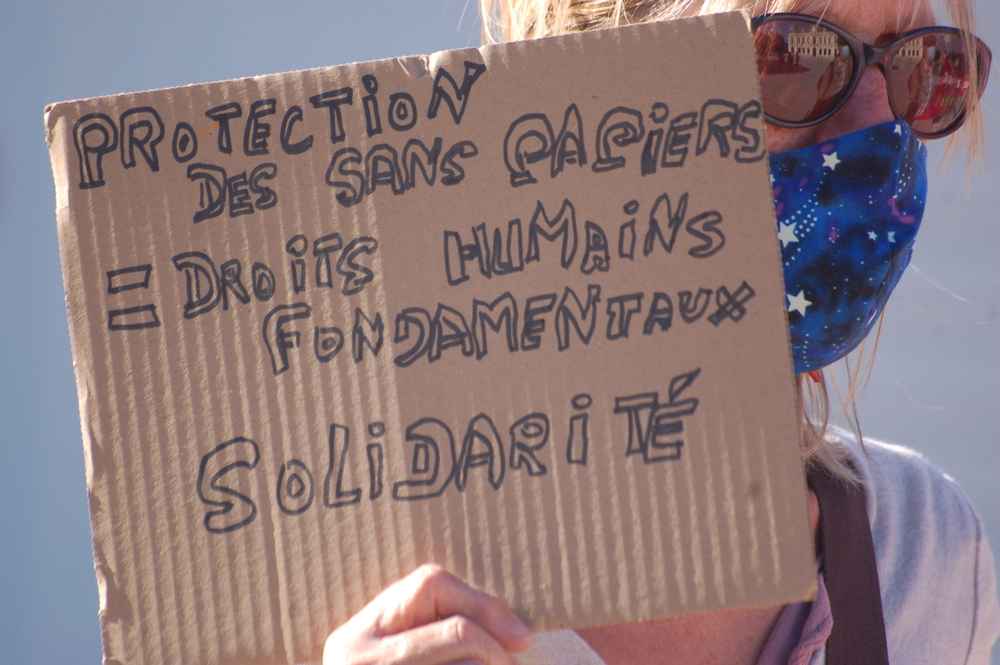 PROTECTION
DES SANS PAPIERS
= DROITS HUMAINS
FONDAMENTAUX
SOLIDARITÉ